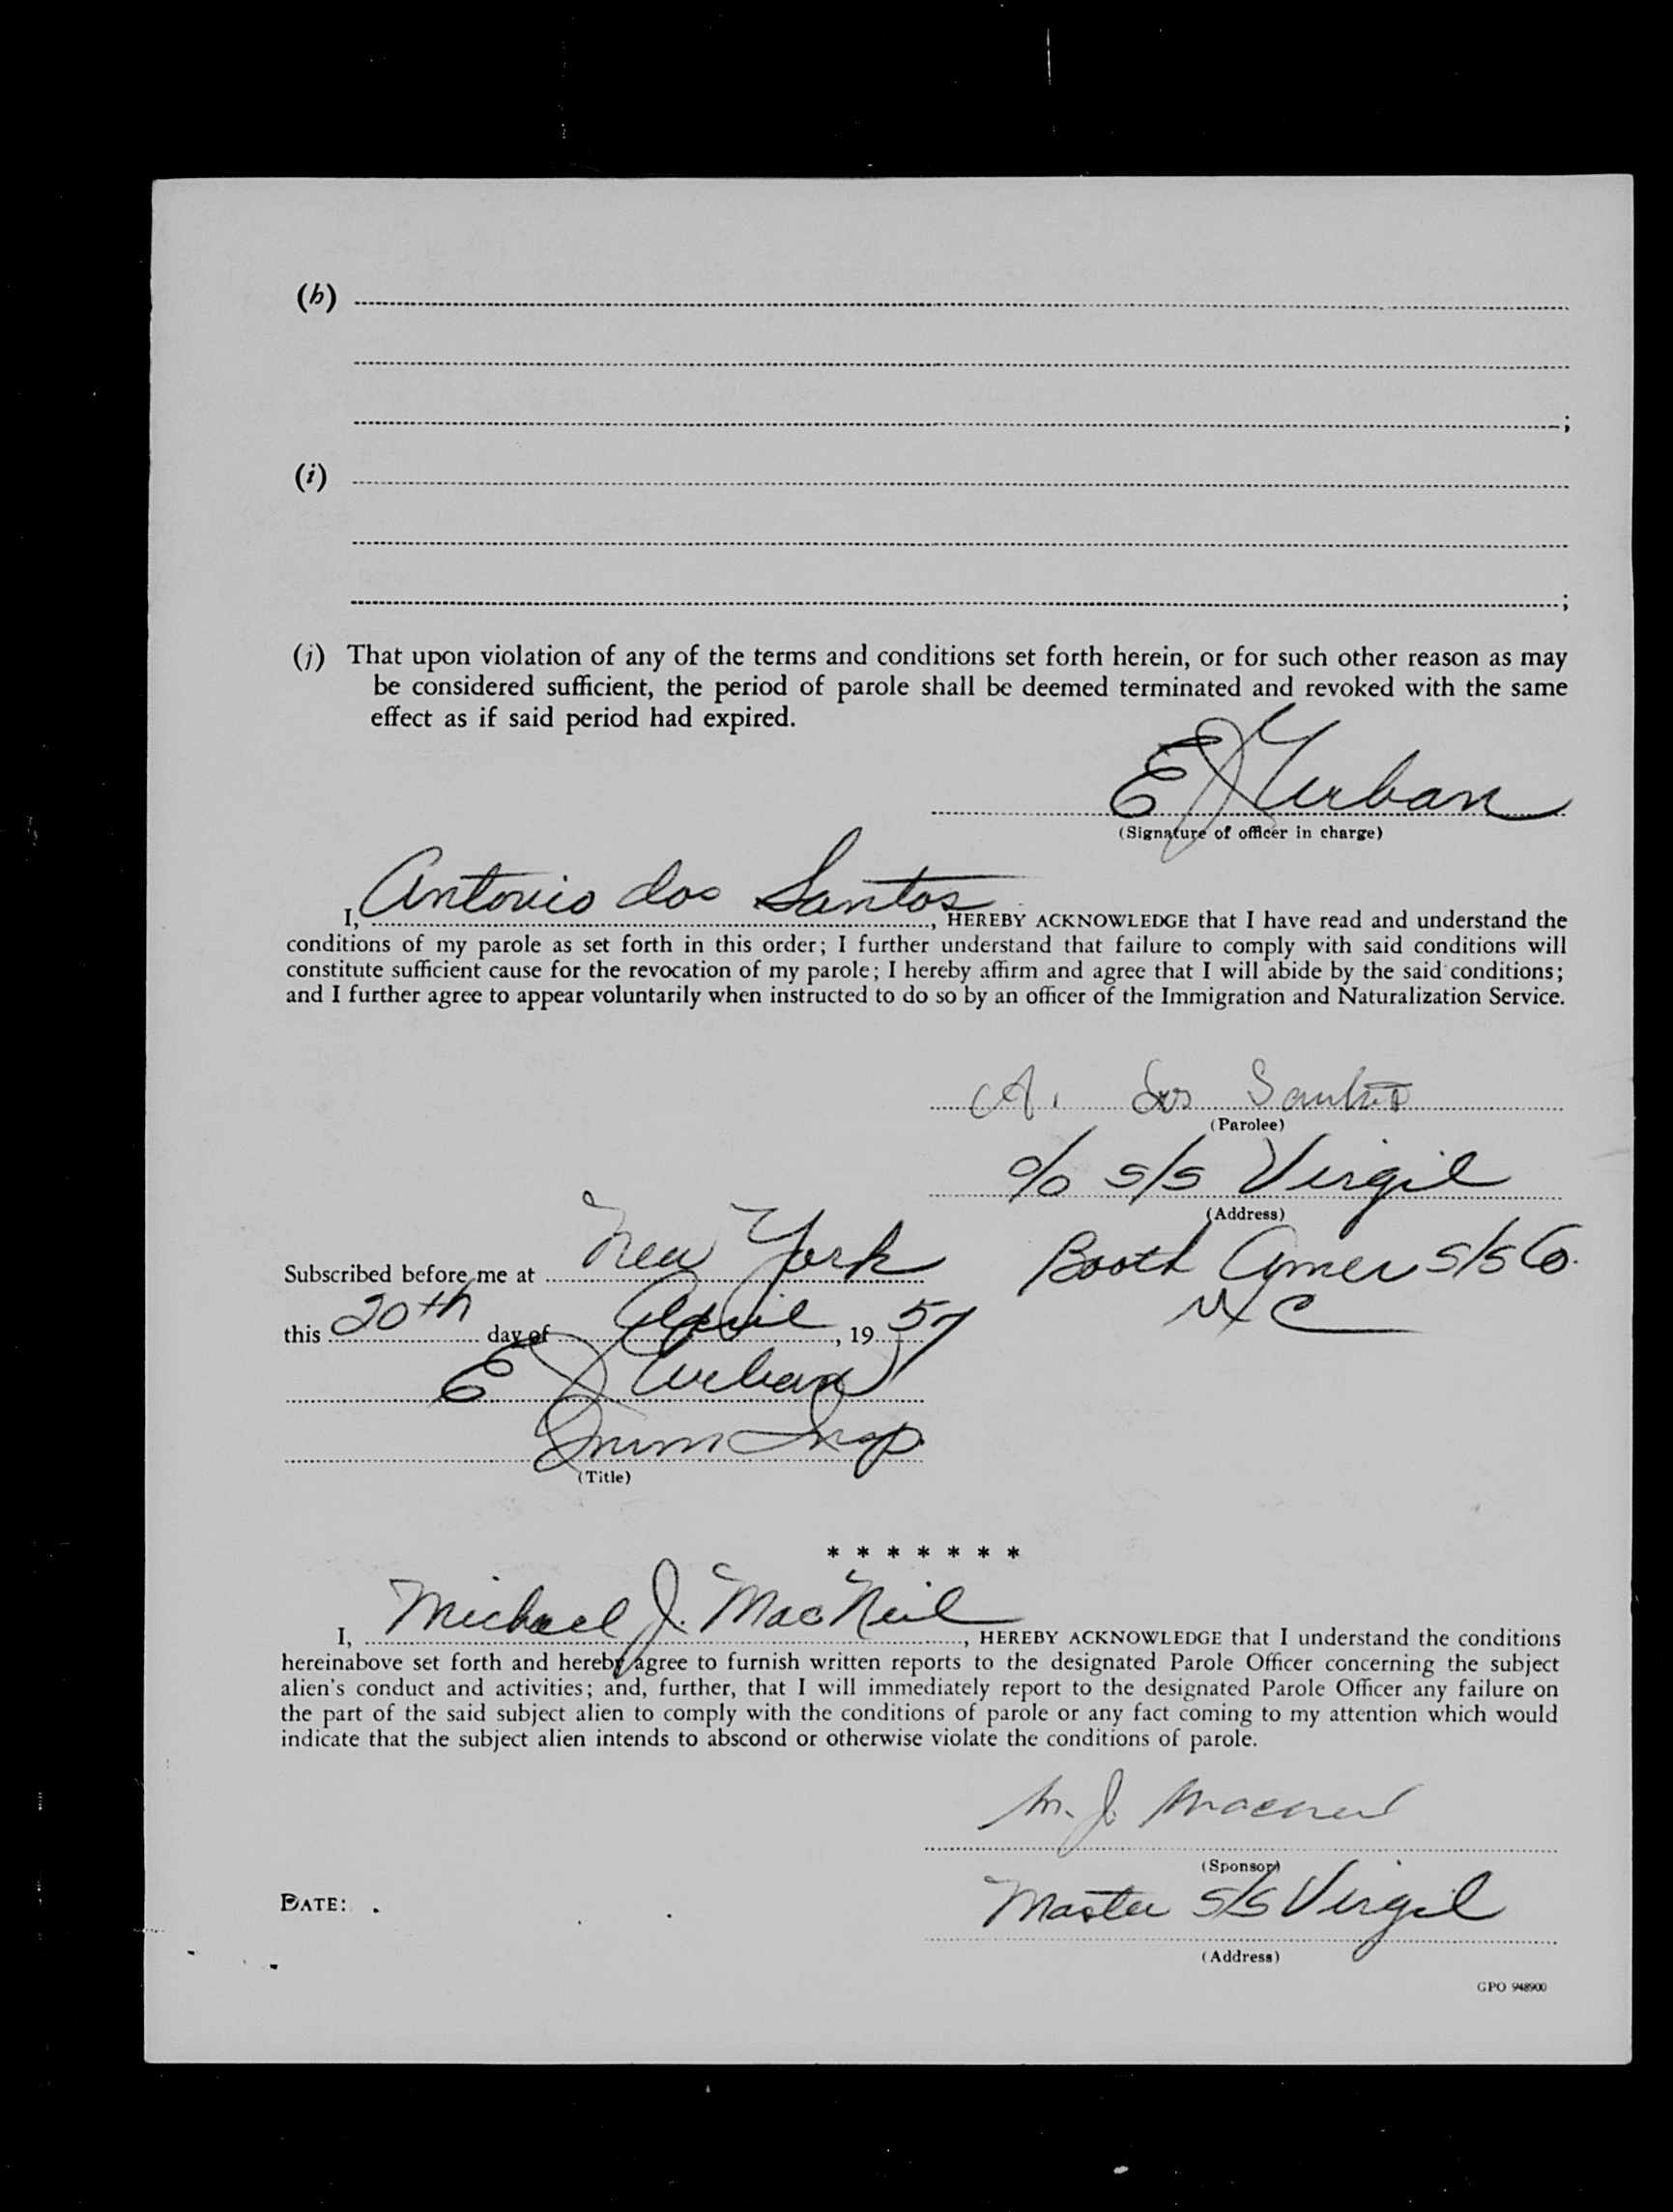 (h)
;
(i)
;
(j) That upon violation of any of the terms and conditions set forth herein, or for such other reason as may
be considered sufficient, the period of parole shall be deemed terminated and revoked with the same
effect as if said period had expired.
E J Urban
(Signature of officer in charge)
I, Antonio dos Santos, HEREBY ACKNOWLEDGE that I have read and understand the
conditions of my parole as set forth in this order; I further understand that failure to comply with said conditions will
constitute sufficient cause for the revocation of my parole; I hereby affirm and agree that I will abide by the said conditions;
and I further agree to appear voluntarily when instructed to do so by an officer of the Immigration and Naturalization Service.
A. dos Santos
(Parolee)
c/o s/s Virgil
(Address)
Booth Amer S/S Co.
NYC
Subscribed before me at New York
this 20th day of April, 1957
E J Urban
Imm Insp.
(Title)
* * * * * * *
I, Michael J. MacNeil, HEREBY ACKNOWLEDGE that I understand the conditions
hereinabove set forth and hereby agree to furnish written reports to the designated Parole Officer concerning the subject
alien's conduct and activities; and, further, that I will immediately report to the designated Parole Officer any failure on
the part of the said subject alien to comply with the conditions of parole or any fact coming to my attention which would
indicate that the subject alien intends to abscond or otherwise violate the conditions of parole.
M. J. MacNeil
(Sponsor)
DATE:
Master S/S Virgil
(Address)
GPO 948900